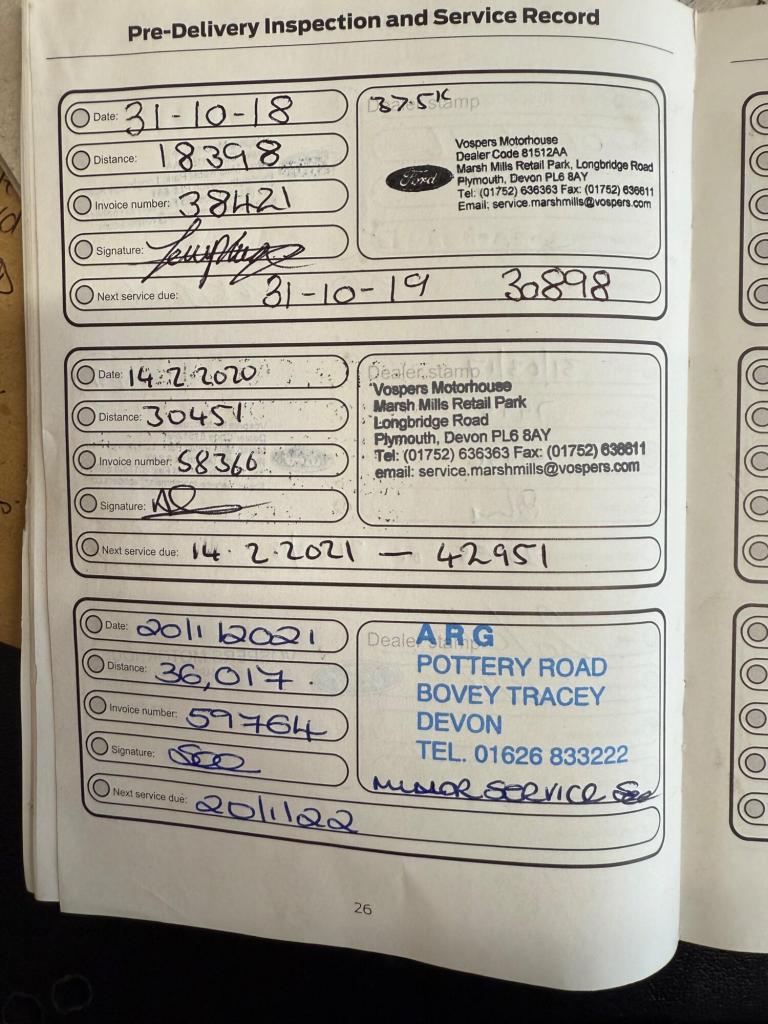 Pre-Delivery Inspection and Service Record
Date: 31-10-18
Distance: 18398
Invoice number: 38421
Signature:
Next service due: 31-10-19 30898
37.5K
Dealer stamp
Ford
Vospers Motorhouse
Dealer Code 81512AA
Marsh Mills Retail Park, Longbridge Road
Plymouth, Devon PL6 8AY
Tel: (01752) 636363 Fax: (01752) 636611
Email: service.marshmills@vospers.com
Date: 14.2.2020
Distance: 30451
Invoice number: 58366
Signature:
Next service due: 14.2.2021 — 42951
Dealer stamp
Vospers Motorhouse
Marsh Mills Retail Park
Longbridge Road
Plymouth, Devon PL6 8AY
Tel: (01752) 636363 Fax: (01752) 636611
email: service.marshmills@vospers.com
Date: 20/1/2021
Distance: 36,017
Invoice number: 59764
Signature:
Next service due: 20/1/22
Dealer stamp
A R G
POTTERY ROAD
BOVEY TRACEY
DEVON
TEL. 01626 833222
MINOR SERVICE
26